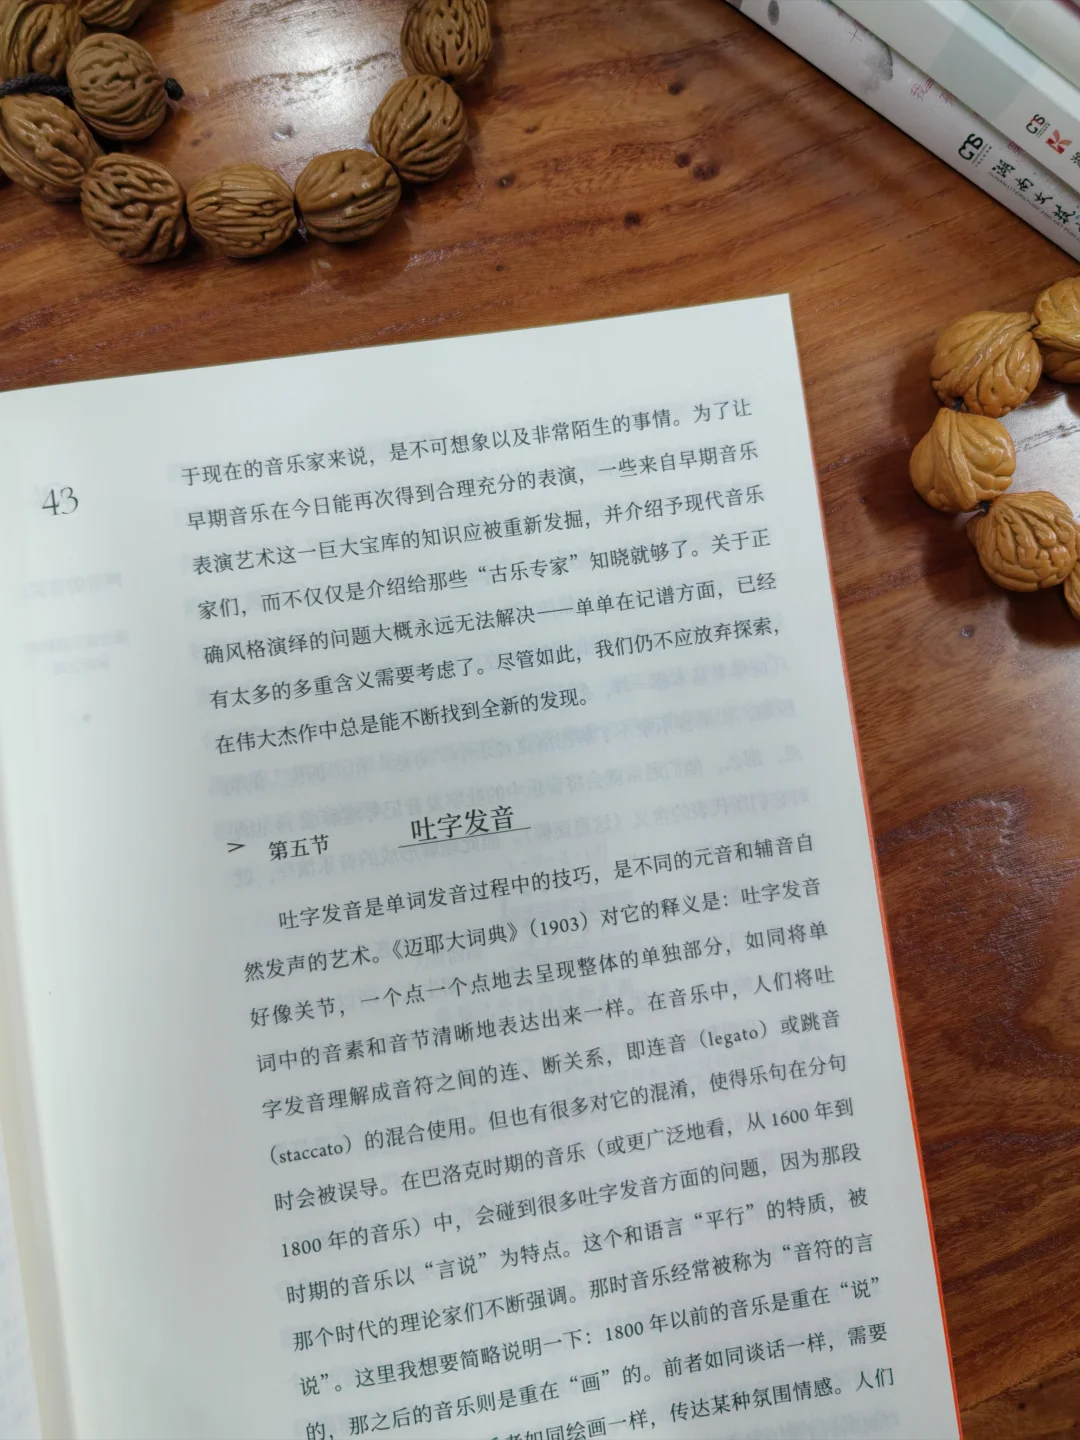 43
于现在的音乐家来说，是不可想象以及非常陌生的事情。为了让
早期音乐在今日能再次得到合理充分的表演，一些来自早期音乐
表演艺术这一巨大宝库的知识应被重新发掘，并介绍予现代音乐
家们，而不仅仅是介绍给那些“古乐专家”知晓就够了。关于正
确风格演绎的问题大概永远无法解决——单单在记谱方面，已经
有太多的多重含义需要考虑了。尽管如此，我们仍不应放弃探索，
在伟大杰作中总是能不断找到全新的发现。
> 第五节 吐字发音
吐字发音是单词发音过程中的技巧，是不同的元音和辅音自
然发声的艺术。《迈耶大词典》（1903）对它的释义是：吐字发音
好像关节，一个点一个点地去呈现整体的单独部分，如同将单
词中的音素和音节清晰地表达出来一样。在音乐中，人们将吐
字发音理解成音符之间的连、断关系，即连音（legato）或跳音
（staccato）的混合使用。但也有很多对它的混淆，使得乐句在分句
时会被误导。在巴洛克时期的音乐（或更广泛地看，从 1600 年到
1800 年的音乐）中，会碰到很多吐字发音方面的问题，因为那段
时期的音乐以“言说”为特点。这个和语言“平行”的特质，被
那个时代的理论家们不断强调。那时音乐经常被称为“音符的言
说”。这里我想要简略说明一下：1800 年以前的音乐是重在“说”
的，那之后的音乐则是重在“画”的。前者如同谈话一样，需要
者如同绘画一样，传达某种氛围情感。人们
湖南文艺